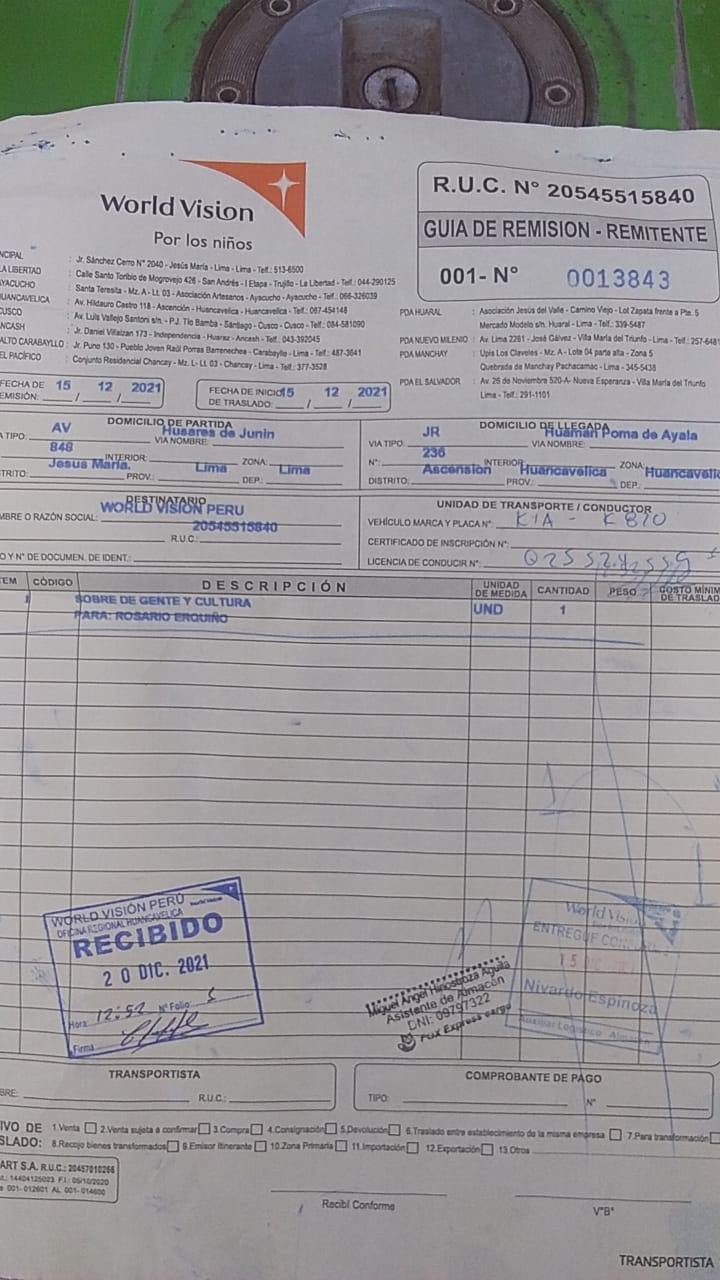 World Vision
Por los niños
R.U.C. N° 20545515840
GUIA DE REMISION - REMITENTE
001- N° 0013843
NCIPAL : Jr. Sánchez Cerro N° 2040 - Jesús María - Lima - Lima - Telf.: 513-6500
LA LIBERTAD : Calle Santo Toribio de Mogrovejo 426 - San Andrés - I Etapa - Trujillo - La Libertad - Telf.: 044-290125
AYACUCHO : Santa Teresita - Mz. A - Lt. 03 - Asociación Artesanos - Ayacucho - Ayacucho - Telf.: 066-326039
HUANCAVELICA : Av. Hildauro Castro 118 - Ascención - Huancavelica - Huancavelica - Telf.: 067-454148
CUSCO : Av. Luis Vallejo Santoni s/n. - P.J. Tío Bamba - Santiago - Cusco - Cusco - Telf.: 084-581090
ANCASH : Jr. Daniel Villaizan 173 - Independencia - Huaraz - Ancash - Telf.: 043-392045
ALTO CARABAYLLO : Jr. Puno 130 - Pueblo Joven Raúl Porras Barrenechea - Carabayllo - Lima - Telf.: 487-3641
EL PACÍFICO : Conjunto Residencial Chancay - Mz. L - Lt. 03 - Chancay - Lima - Telf.: 377-3528
PDA HUARAL : Asociación Jesús del Valle - Camino Viejo - Lot Zapata frente a Pte. 5
Mercado Modelo s/n. Huaral - Lima - Telf.: 339-5487
PDA NUEVO MILENIO : Av. Lima 2261 - José Gálvez - Villa María del Triunfo - Lima - Telf.: 257-6481
PDA MANCHAY : Upis Los Claveles - Mz. A - Lote 04 parte alta - Zona 5
Quebrada de Manchay Pachacamac - Lima - 345-5438
PDA EL SALVADOR : Av. 26 de Noviembre 520-A- Nueva Esperanza - Villa María del Triunfo
Lima - Telf.: 291-1101
FECHA DE EMISIÓN: 15 / 12 / 2021
FECHA DE INICIO DE TRASLADO: 15 / 12 / 2021
DOMICILIO DE PARTIDA
A TIPO: AV VIA NOMBRE: Husares de Junin
848 INTERIOR: ZONA:
STRITO: Jesus Maria. PROV.: Lima DEP.: Lima
DOMICILIO DE LLEGADA
VIA TIPO: JR VIA NOMBRE: Huaman Poma de Ayala
N°: 236 INTERIOR ZONA:
DISTRITO: Ascension PROV.: Huancavelica DEP.: Huancavelic
DESTINATARIO
MBRE O RAZÓN SOCIAL: WORLD VISION PERU
R.U.C.: 20545515840
O Y N° DE DOCUMEN. DE IDENT.:
UNIDAD DE TRANSPORTE / CONDUCTOR
VEHÍCULO MARCA Y PLACA N°: KIA - K820
CERTIFICADO DE INSCRIPCIÓN N°:
LICENCIA DE CONDUCIR N°:
TEM CÓDIGO DESCRIPCIÓN UNIDAD DE MEDIDA CANTIDAD PESO COSTO MÍNIM DE TRASLAD
1 SOBRE DE GENTE Y CULTURA UND 1
PARA: ROSARIO ERQUIÑO
WORLD VISIÓN PERÚ
OFICINA REGIONAL HUANCAVELICA
RECIBIDO
20 DIC. 2021
Hora: 12:52 N° Folio:
Firma
Miguel Angel Hinostroza Aguila
Asistente de Almacén
DNI: 09797322
Fox Express cargo
World Vision
ENTREGUE
15
Nivardo Espinoza
Auxiliar Logístico Almacén
TRANSPORTISTA
BRE: R.U.C.:
COMPROBANTE DE PAGO
TIPO: N°
IVO DE 1.Venta 2.Venta sujeta a confirmar 3.Compra 4.Consignación 5.Devolución 6.Traslado entre establecimiento de la misma empresa 7.Para transformación
SLADO: 8.Recojo bienes transformados 9.Emisor Itinerante 10.Zona Primaria 11.Importación 12.Exportación 13.Otros
ART S.A. R.U.C.: 20457010266
t.: 14404125023 F.I.: 05/10/2020
e 001-012601 AL 001-014600
Recibí Conforme
V°B°
TRANSPORTISTA